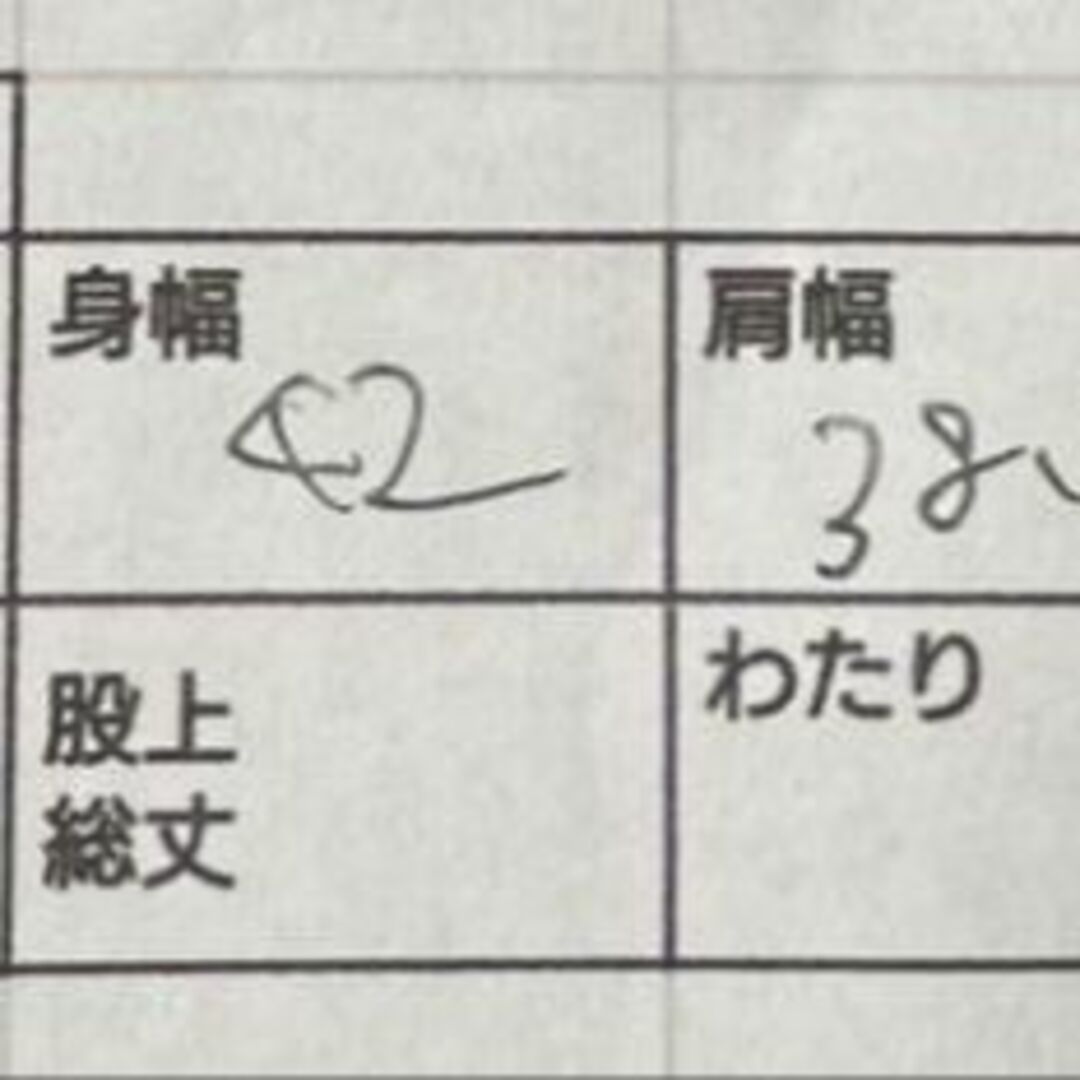 身幅
肩幅
42
38
股上
総丈
わたり